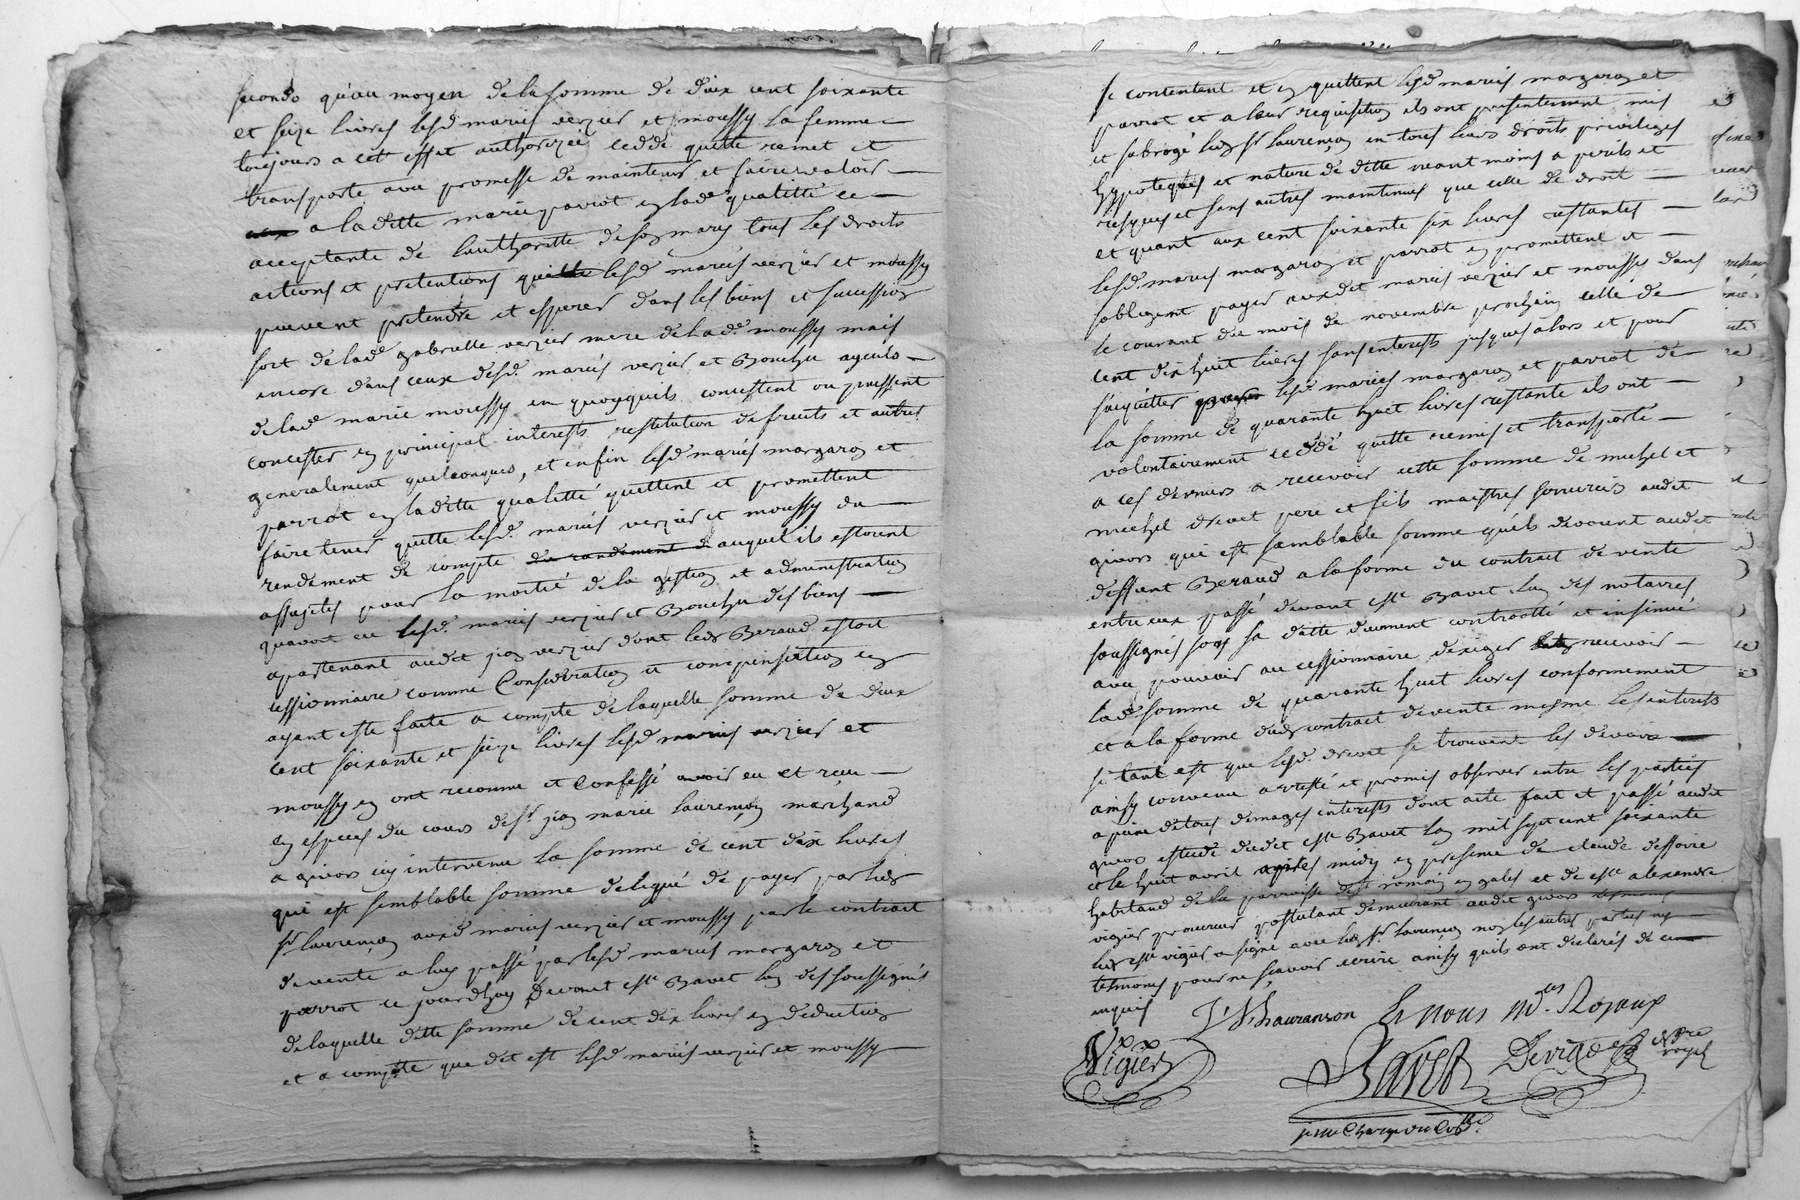 secondo qu'au moyen de la somme de deux cent soixante
et seize livres lesd mariés verzier et moussy la femme
toujours a cett effet authorizée cedde quitte remet et
transporte avec promesse de maintenir et faire valoir
a laditte marie parrot en lade qualitté ce
acceptante de lauthoritté de son mary tous les droits
actions et pretentions lesd mariés verzier et moussy
peuvent pretendre et esperer dans les biens et succession
de lade gabrielle verzier mere de lade moussy mais
encore dans ceux desd. mariés verzier et Bouchu ayeuls
de lade marie moussy en quoyquils concistent ou puissent
concister en principal interests restitution de fruits et autres
generalement quelconques, et enfin lesd mariés margaron et
parrot en laditte qualitté quittent et promettent
faire tenir quitte lesd. mariés verzier et moussy du
rendement de compte du randement d auquel ils estoient
assujetis pour la moitié de la gestion et administration
quavoit eu lesd. mariés verzier et Bouchu des biens
apartenant audit jean verzier dont led Beraud estoit
cessionnaire comme Consideration et compensation en
ayant esté faite a compte de laquelle somme de deux
cent soixante et seize livres lesd mariés verzier et
moussy en ont reconnu et Confessé avoir eu et reçu
en especes du cours de sr. jean marie laurençon marchand
a givors icy intervenu la somme de cent dix livres
qui est semblable somme deleguée de payer par led
sr. laurençon auxd mariés verzier et moussy par le contrait
de vente a luy passé par lesd mariés margaron et
parrot ce jourdhuy Devant estt Bavet lun des soussignés
de laquelle ditte somme de cent dix livres en deduction
et a compte que dit est lesd mariés verzier et moussy
se contentent et en quittent lesd mariés margaron et
parrot et a leur requisition ils ont presentement mis
et subrogé led sr laurençon en tous leurs droits privileges
hypoteques et nature de dette neant moins a perils et
risques et sans autres maintenues que celle de droit
et quant aux cent soixante six livres restantes
lesd mariés margaron et parrot en promettent et
sobligent payer auxdits mariés verzier et moussy dans
le courant du mois de novembre prochain celle de
cent dix huit livres sans interests jusques alors et pour
saquitter lesd mariés margaron et parrot de
la somme de quarante huit livres restante ils ont
volontairement ceddé quitte remis et transporté
a ces derniers a recevoir cette somme de michel et
michel drevet pere et fils maistres audit
givors qui est semblable somme quils devoient audit
deffunt Beraud a la forme du contrait de vente
entre eux passé devant estt Bavet lun des notaires
soussignés sous sa datte duement controllé et insinué
avec pouvoir au cessionnaire dexiger recevoir
lade somme de quarante huit livres conformement
et a la forme dud contrait de vente mesme les interests
si tant est que lesd. drevet se trouvent les devoir
ainsy convenu arresté et promis observer entre les parties
a peine de tous dépens interests dont acte fait et passé audit
givors estude dudit estt Bavet lan mil sept cent soixante
et le huit avril apres midy en presence de claude dessoire
habitand de la paroisse de st romain en gales et de estt alexandre
vigier procureur postulant demeurant audit givors
led estt vigier a signé avec led sr laurençon non les autres parties ny
temoins pour ne sçavoir ecrire ainsy quils ont declarés de ce
enquis
Lauranson Et nous nores Royaux
Vigier
Bavet